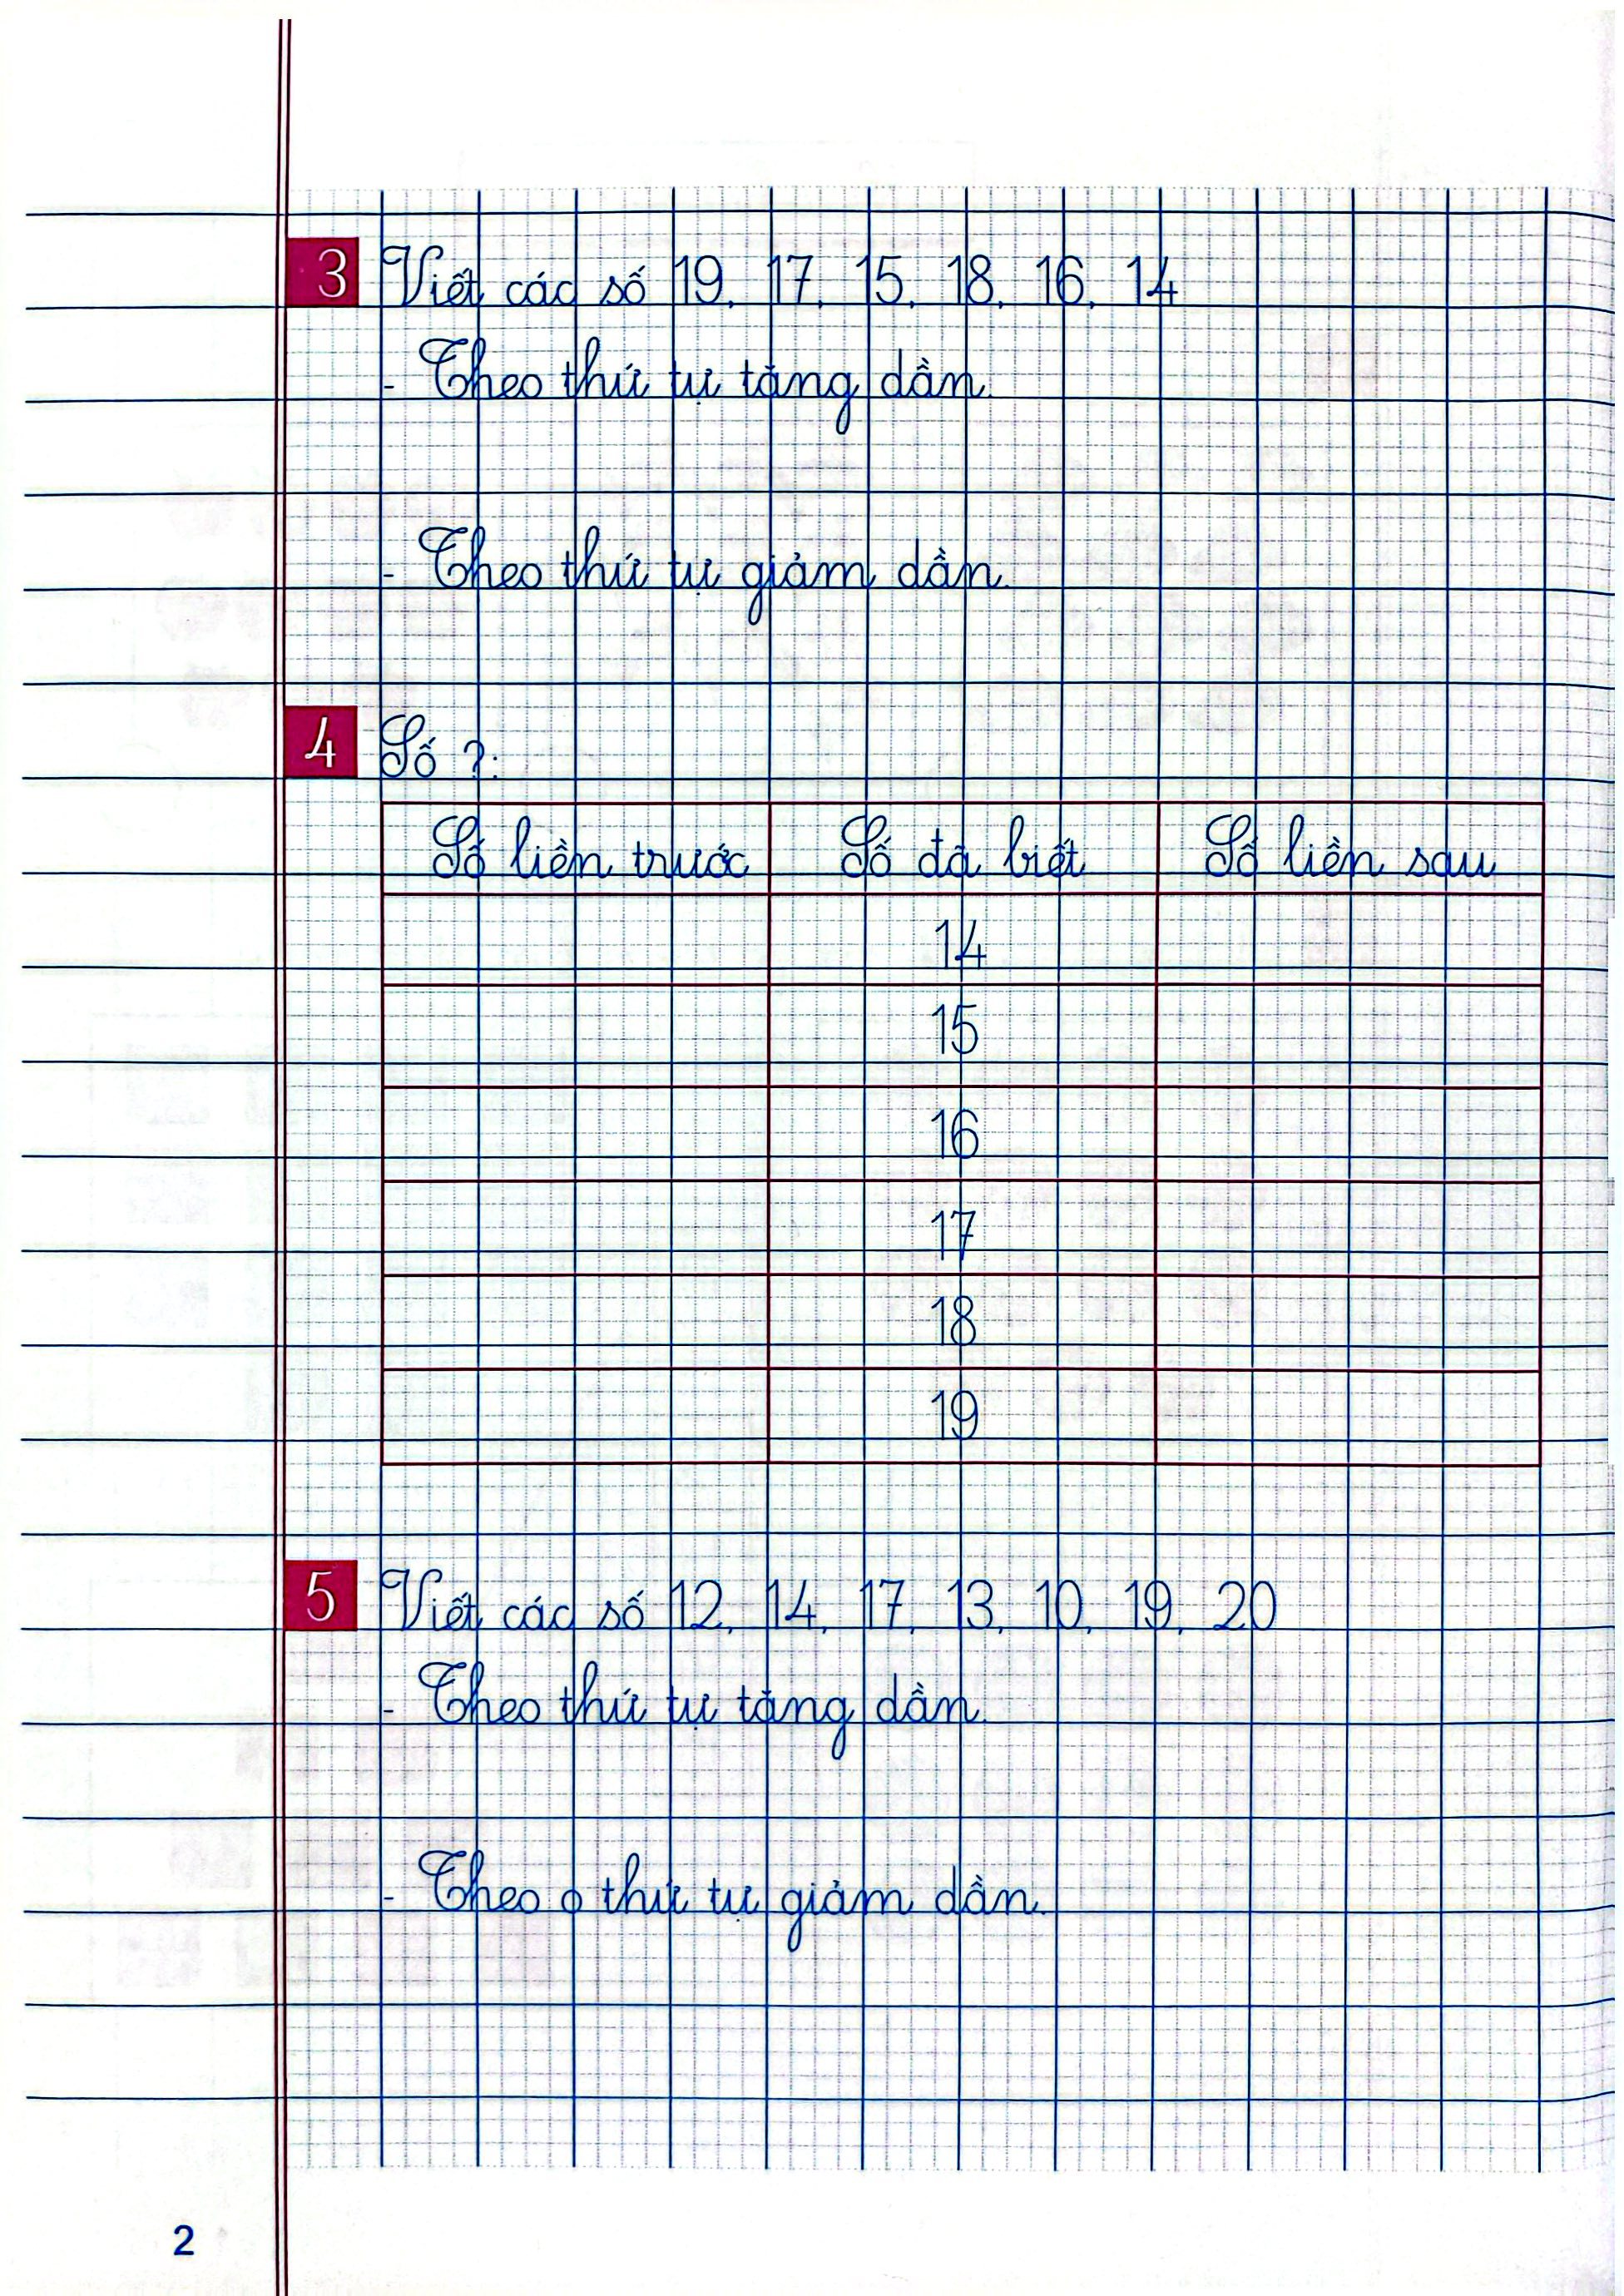 3 Viết các số 19, 17, 15, 18, 16, 14
- Theo thứ tự tăng dần.
- Theo thứ tự giảm dần.
4 Số ?:
Số liền trước Số đã biết Số liền sau
14
15
16
17
18
19
5 Viết các số 12, 14, 17, 13, 10, 19, 20
- Theo thứ tự tăng dần.
- Theo o thứ tự giảm dần.
2